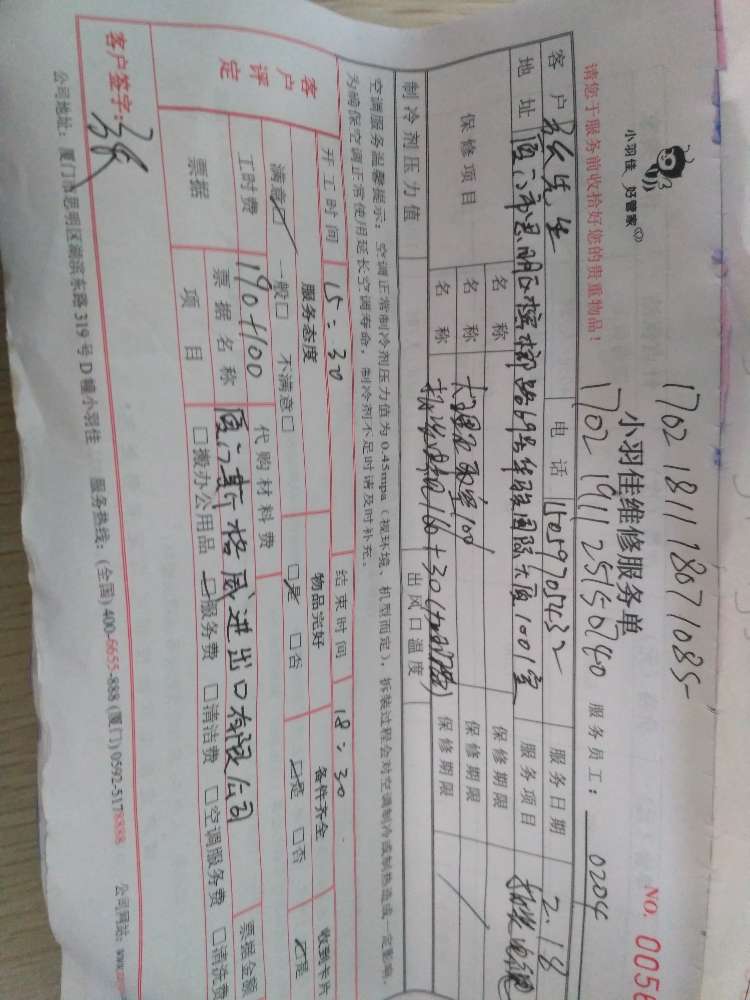 1702 1811 1807 1085
小羽佳 好管家
小羽佳维修服务单
NO. 0056
1702 1911 25150740 服务员工： 0204
请您于服务前收拾好您的贵重物品！
客户 先生 电话 15059705432 服务日期 2.18
地址 厦门市思明区槟榔路69号华联国际大厦1001室 服务项目
保修项目 名称 保修期限
名称 100 保修期限
名称 160+30 保修期限
制冷剂压力值 出风口温度
空调服务温馨提示：空调正常制冷剂压力值为 0.45mpa（视环境、机型而定），拆装过程会对空调制冷或制热造成一定影响，
为确保空调正常使用延长空调寿命，制冷剂不足时请及时补充。
开工时间 15：30 结束时间 18：30
客户评定 服务态度 物品完好 备件齐全 收到卡片
满意☑ 一般□ 不满意□ ☑是 □否 ☑是 □否 ☑是
工时费 190+100 代购材料费 票据金额
票据 票据名称 厦门斯格威进出口有限公司
项目 □搬办公用品 ☑服务费 □清洁费 □空调服务费 □清洗费
客户签字：
公司地址：厦门市思明区湖滨东路 319 号 D 幢小羽佳 服务热线：(全国) 400-6655-888 (厦门) 0592-5178888 公司网站：